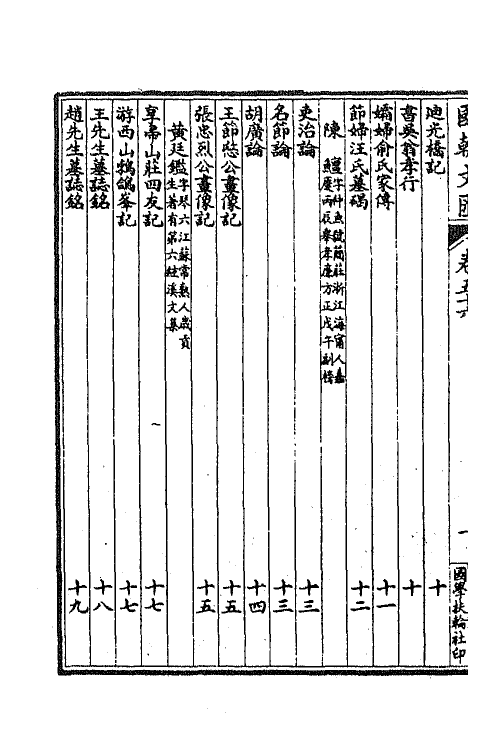 國朝文匯 卷五十六 一 國學扶輪社印
迴光橋記 十
書吳翁孝行 十
孀婦俞氏家傳 十一
節婦汪氏墓碣 十二
陳鱣 字仲魚號簡莊浙江海甯人嘉慶丙辰舉孝廉方正戊午副榜
吏治論 十三
名節論 十三
胡廣論 十四
王節愍公畫像記 十五
張忠烈公畫像記 十五
黃廷鑑 字琴六江蘇常熟人歲貢生著有第六絃溪文集
享帚山莊四友記 十七
游西山鵓鴿峯記 十七
王先生墓誌銘 十八
趙先生墓誌銘 十九